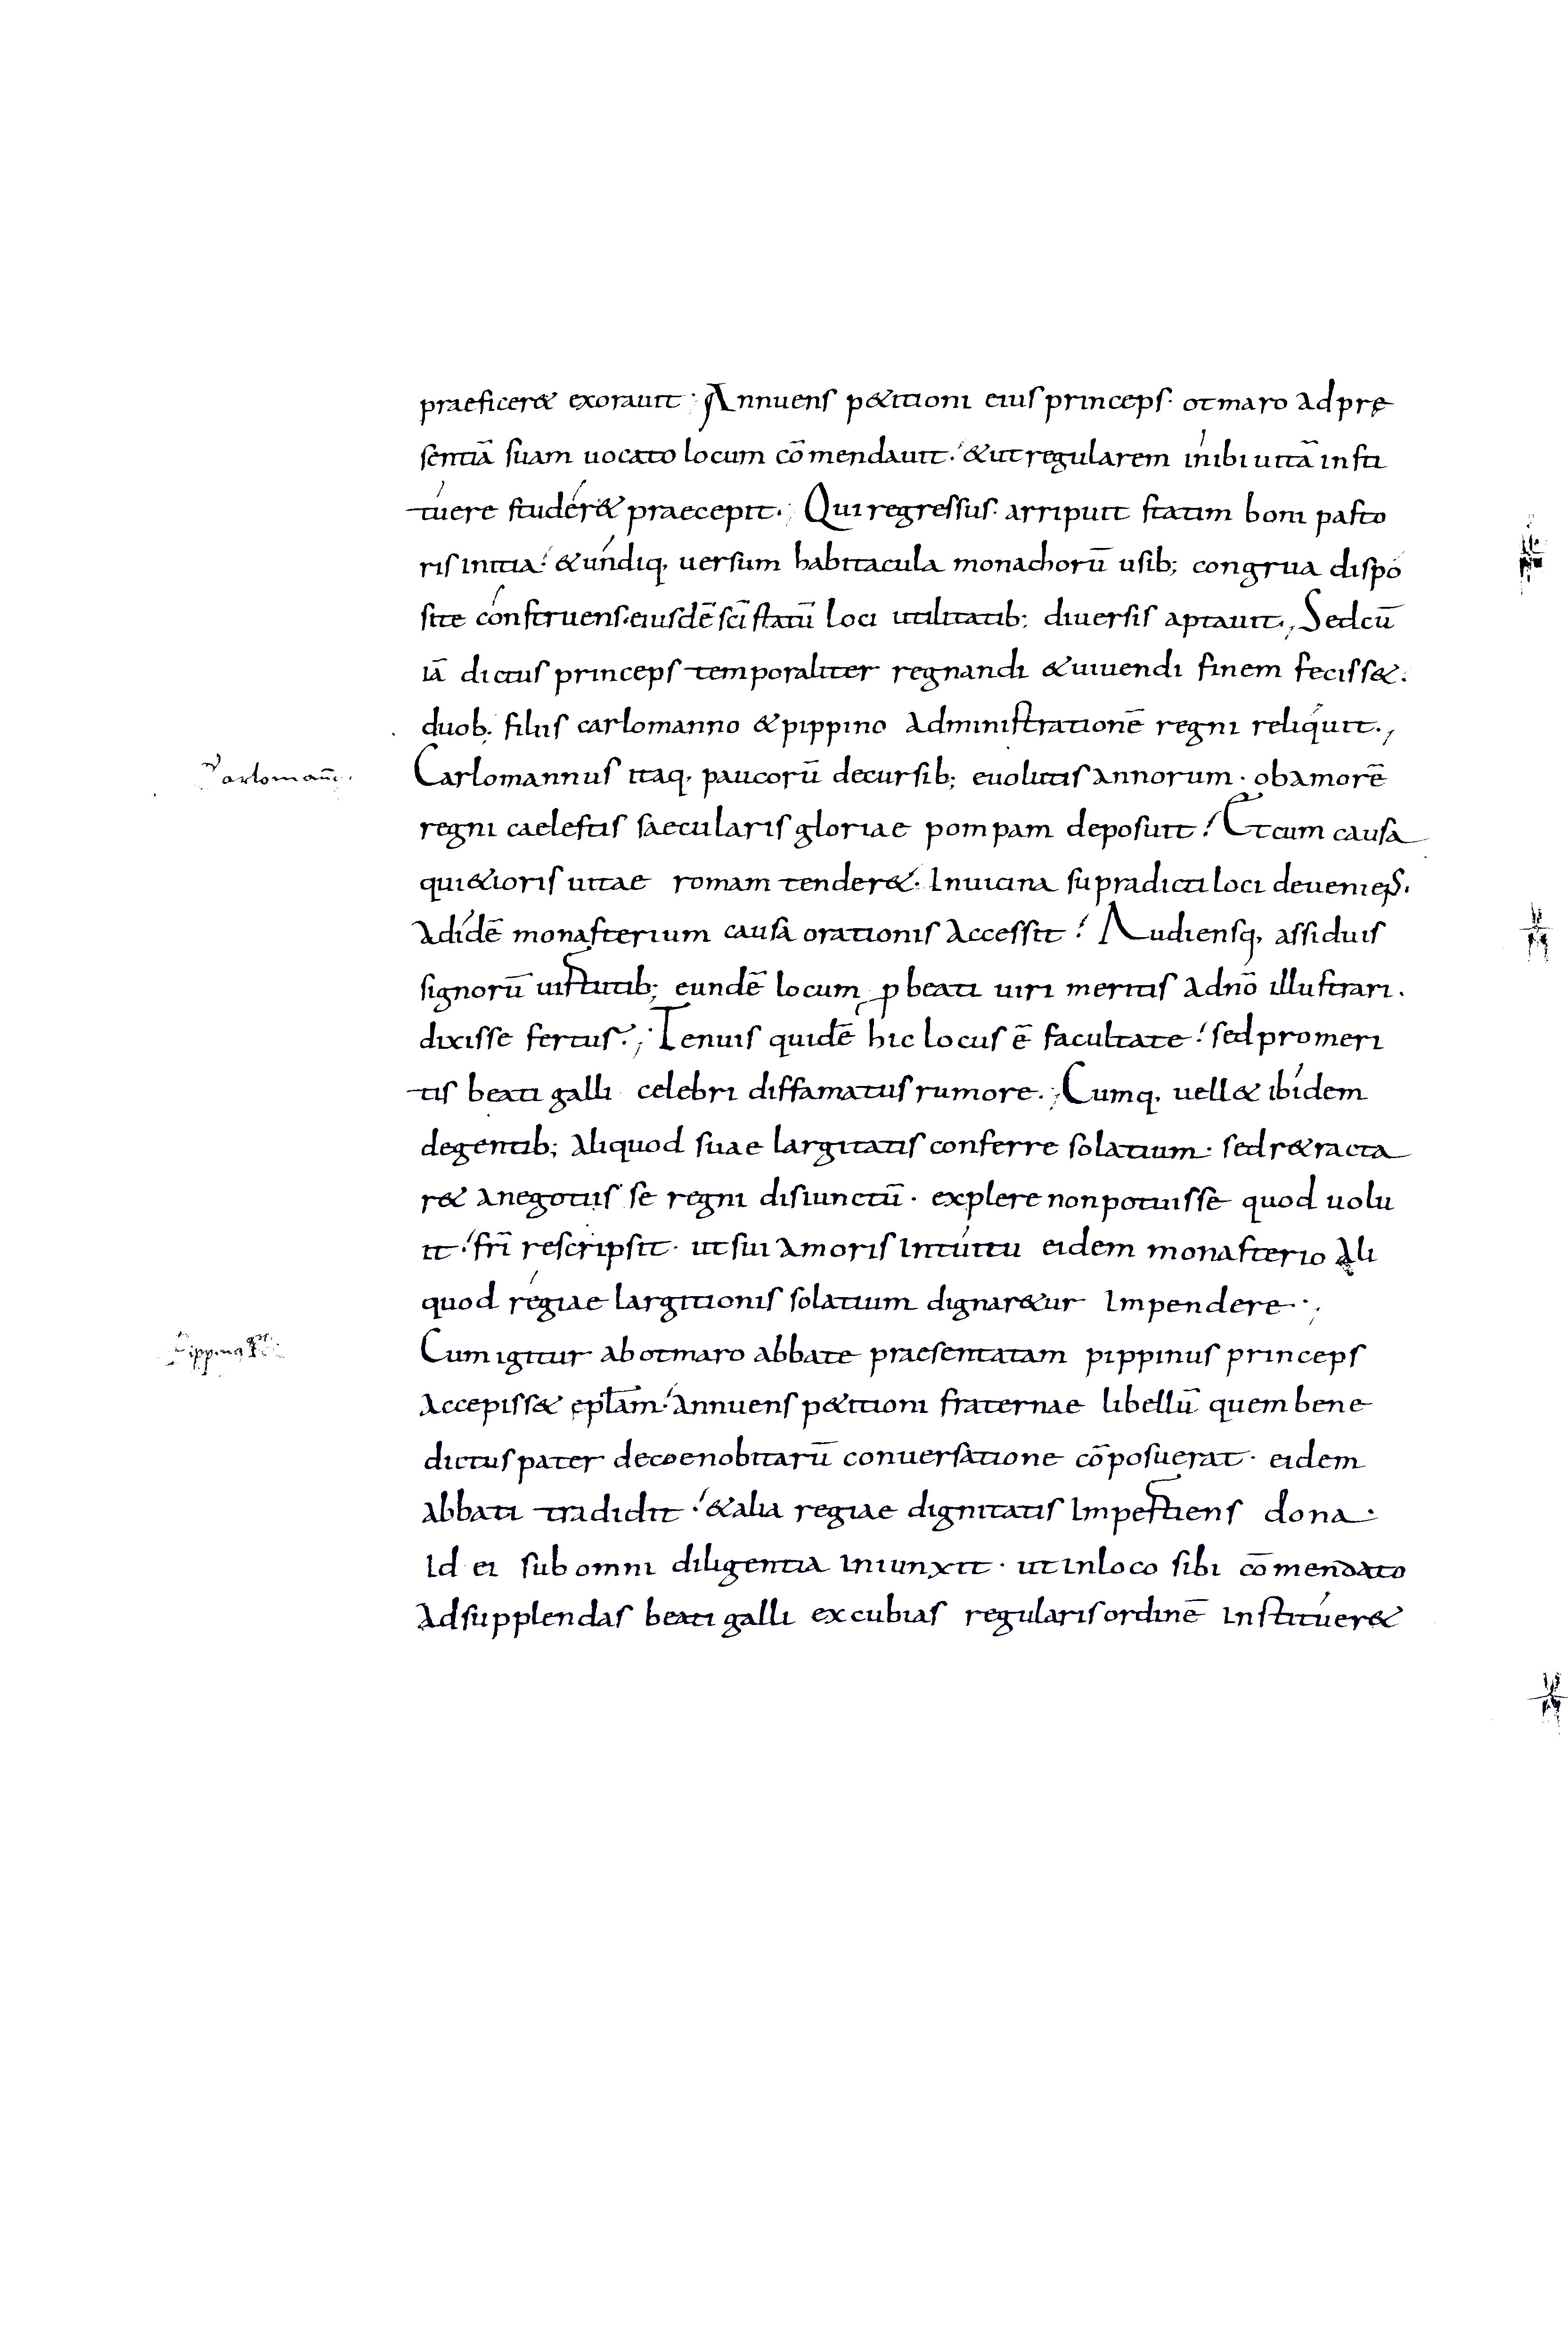 praeficer& exorauit· Annuens p&itioni eius princeps· otmaro ad prę
sentiā suam uocato locum cōmendauit· & ut regularem inibi uitā insti
tuere studér& praecepit·; Qui regressus· arripuit statim boni pasto
ris initia· & undiq· uersum habitacula monachorū usib; congrua dispo
site construens· eiusdē sc̄i statū loci utilitatib; diuersis aptauit·; Sed cū
iā dictus princeps temporaliter regnandi & uiuendi finem feciss&·
duob; filiis carlomanno & pippino administrationē regni reliquit·;
Carlomannus itaq· paucorū decursib; euolutis annorum· ob amorē
regni caelestis saecularis gloriae pompam deposuit· Et cum causa
qui&ioris uitae romam tender&· In uicina supradicti loci deueniens·
Ad idē monasterium causa orationis accessit· Audiensq· assiduis
signorū uirtutib; eundē locum p beati uiri meritis ad n̄o illustrari·
dixisse fertur·; Tenuis quidē hic locus ē facultate· sed pro meri
tis beati galli celebri diffamatus rumore·; Cumq· uell& ibidem
degentib; aliquod suae largitatis conferre solatium· sed r&racta
r& a negotiis se regni disiunctū· explere non potuisse quod uolu
it· fr̄i rescripsit· ut sui amoris intuitu eidem monasterio ali
quod régiae largitionis solatium dignar&ur impendere·;
Cum igitur ab otmaro abbate praesentatam pippinus princeps
Accepiss& epl̄am· annuens p&itioni fraternae libellū quem bene
dictus pater de coenobitarū conuersatione cōposuerat· eidem
abbati tradidit· & alia regiae dignitatis impertiens dona·
Id ei sub omni diligentia iniunxit· ut in loco sibi cōmendato
Ad supplendas beati galli excubias regularis ordinē instituer&